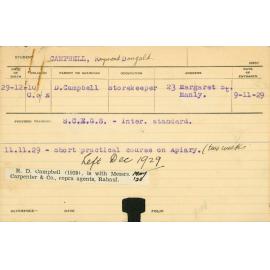 STUDENT CAMPBELL, Raymond Dougald.
DATE OF BIRTH RELIGION PARENT OR GUARDIAN OCCUPATION ADDRESS DATE OF ENTRANCE
29-12-10 C of E D. Campbell storekeeper 23 Margaret St. Manly. 9-11-29
PREVIOUS TRAINING S.C.E.G.S. - Inter. standard.
11.11.29 - short practical course on Apiary. (two weeks
Left Dec 1929
R. D. Campbell (1929), is with Messrs.
Carpenter & Co., copra agents, Rabaul.